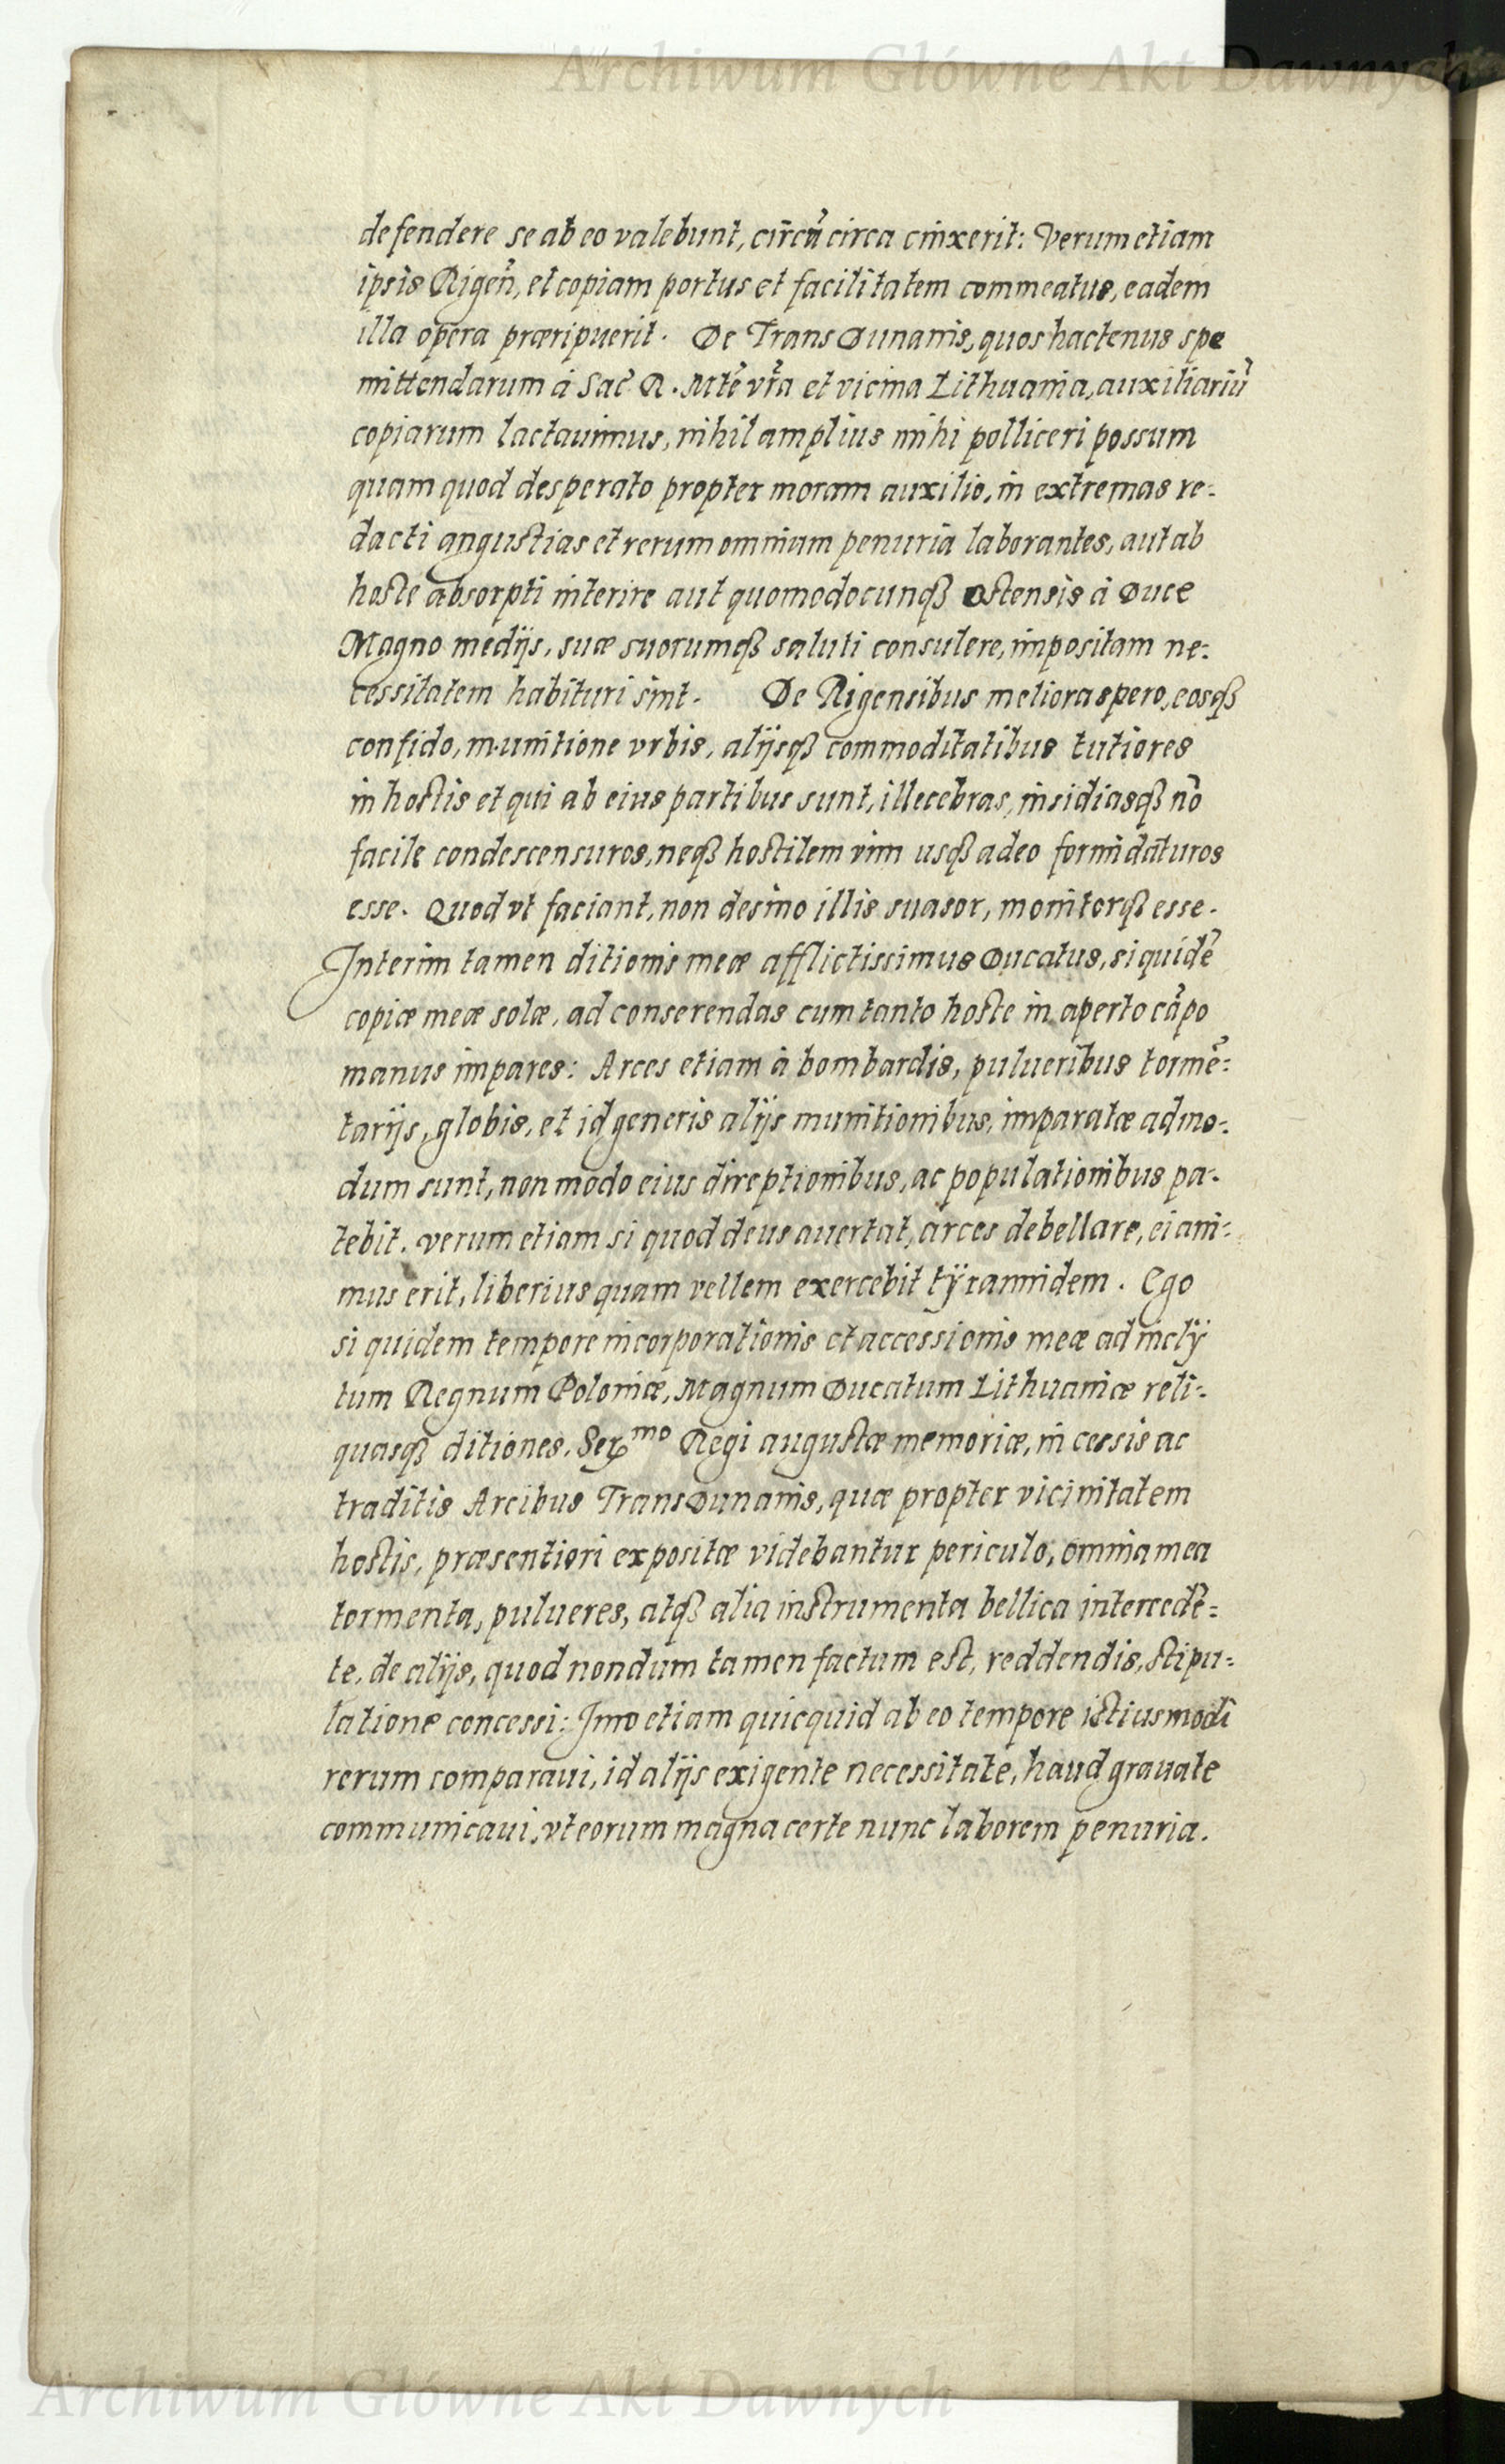 Archiwum Główne Akt Dawnych
defendere se ab eo valebunt, circũ circa cinxerit: Verum etiam
ipsis Rigeñ, et copiam portus et facilitatem commeatus, eadem
illa opera præripuerit. De Trans Dunanis, quos hactenus spe
mittendarum à Sac̃ R. Mtẽ vr̃a et vicina Lithuania, auxiliariũ
copiarum lactauimus, nihil amplius mihi polliceri possum
quam quod desperato propter moram auxilio, in extremas re-
dacti angustias et rerum omnium penuria laborantes, aut ab
hoste absorpti interire aut quomodocunqꝫ ostensis à Duce
Magno medijs, suæ suorumqꝫ saluti consulere, impositam ne-
cessitatem habituri sint. De Rigensibus meliora spero, eosqꝫ
confido, munitione vrbis, alijsqꝫ commoditatibus tutiores
in hostis et qui ab eius partibus sunt, illecebras, insidiasqꝫ nõ
facile condescensuros, neqꝫ hostilem vim usqꝫ adeo formidaturos
esse. Quod vt faciant, non desino illis suasor, monitorqꝫ esse.
Interim tamen ditionis meæ afflictissimus Ducatus, siquidẽ
copiæ meæ solæ, ad conserendas cum tanto hoste in aperto cãpo
manus impares: Arces etiam à bombardis, pulueribus tormẽ-
tarijs, globis, et id generis alijs munitionibus, imparatæ admo-
dum sunt, non modo eius direptionibus, ac populationibus pa-
tebit. verum etiam si quod deus auertat, arces debellare, ei ani-
mus erit, liberius quam vellem exercebit tÿrannidem. Ego
si quidem tempore incorporationis et accessionis meæ ad inclÿ
tum Regnum Poloniæ, Magnum Ducatum Lithuaniæ reli-
quasqꝫ ditiones, Serᵐᵒ Regi augustæ memoriæ, in cessis ac
traditis Arcibus TransDunanis, quæ propter vicinitatem
hostis, præsentiori expositæ videbantur periculo, omnia mea
tormenta, pulueres, atqꝫ alia instrumenta bellica intercedẽ=
te, de alijs, quod nondum tamen factum est, reddendis, stipu=
latione concessi: Imo etiam quicquid ab eo tempore istiusmodi
rerum comparaui, id alijs exigente necessitate, haud grauate
communicaui, vt eorum magna certe nunc laborem penuria.
Archiwum Główne Akt Dawnych